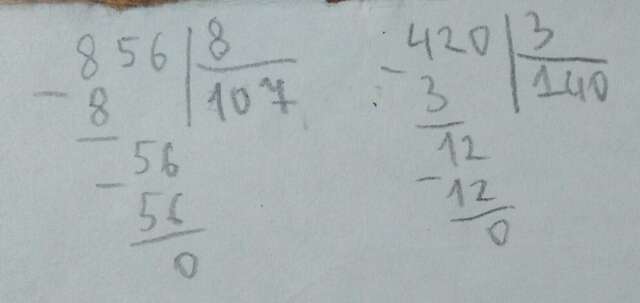 856 | 8
- 8 107
56
- 56
0
420 | 3
- 3 140
12
- 12
0